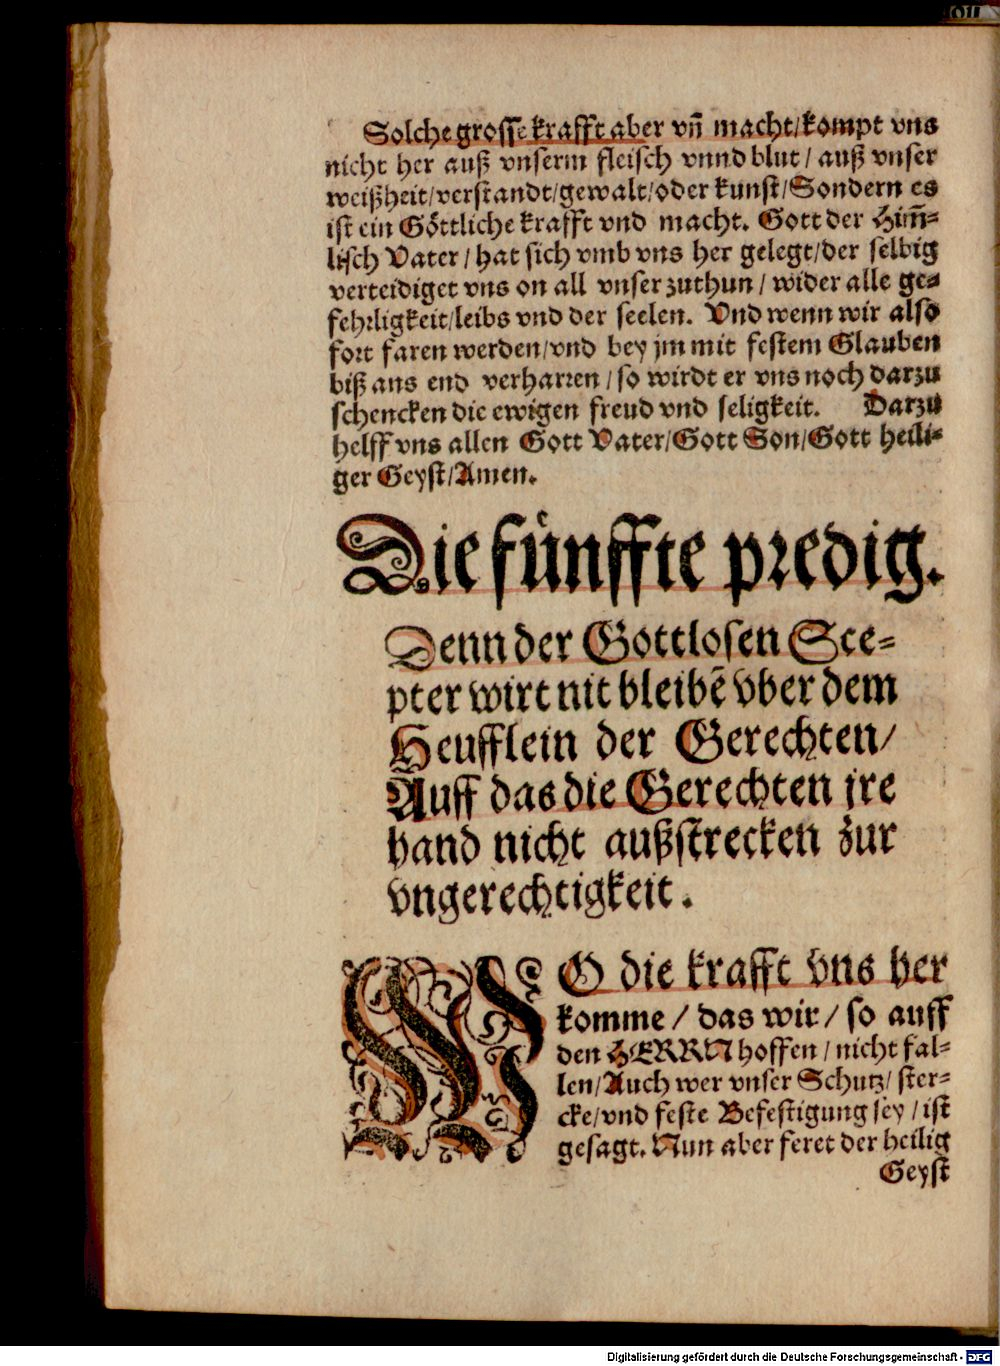 Solche grosse krafft aber vñ macht/kompt vns
nicht her auß vnserm fleisch vnnd blut / auß vnser
weißheit/verstandt/gewalt/oder kunst/Sondern es
ist ein Göttliche krafft vnd macht. Gott der Him̃-
lisch Vater / hat sich vmb vns her gelegt/der selbig
verteidiget vns on all vnser zuthun / wider alle ge-
fehrligkeit/leibs vnd der seelen. Vnd wenn wir also
fort faren werden/vnd bey jm mit festem Glauben
biß ans end verharren / so wirdt er vns noch darzu
schencken die ewigen freud vnd seligkeit. Darzu
helff vns allen Gott Vater/Gott Son/Gott heili-
ger Geyst/Amen.
Die fünffte predig.
Denn der Gottlosen Sce-
pter wirt nit bleibẽ vber dem
Heufflein der Gerechten/
Auff das die Gerechten jre
hand nicht außstrecken zur
vngerechtigkeit.
WO die krafft vns her
komme / das wir / so auff
den HERRN hoffen / nicht fal-
len/Auch wer vnser Schutz/ ster-
cke/vnd feste Befestigung sey / ist
gesagt. Nun aber feret der heilig
Geyst
Digitalisierung gefördert durch die Deutsche Forschungsgemeinschaft - DFG